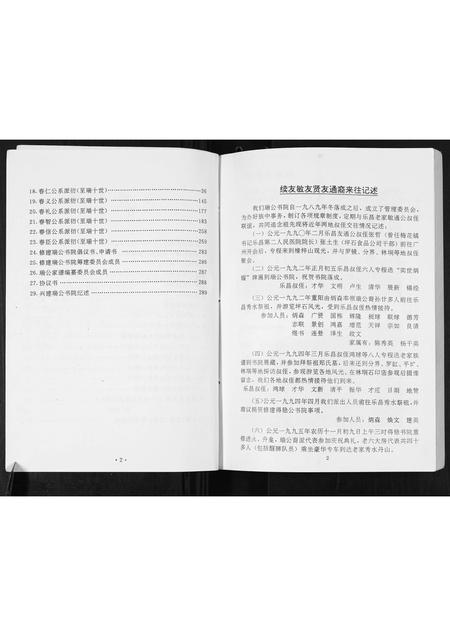 18. 春仁公系派衍(至瑞十世) 26
19. 春义公系派衍(至瑞十世) 145
20. 春礼公系派衍(至瑞十世) 177
21. 春智公系派衍(至瑞十世) 183
22. 春信公系派衍(至瑞十世) 258
23. 春臣公系派衍(至瑞十世) 259
24. 修建瑞公书院倡议书、申请书 283
25. 修建瑞公书院筹建委员会成员 286
26. 瑞公家谱编纂委员会成员 287
27. 协议书 288
29. 兴建瑞公书院纪述 289
· 2 ·
续友敏友贤友通裔来往记述
我们瑞公书院自一九八九年冬落成之后，成立了管理委员会，
为办好族中事务，制订各项规章制度，定期与乐昌老家敏通公叔侄
联谊，共同追念祖先现将近年两地叔侄交往情况记述：
(一) 公元一九九〇年二月乐昌友通公叔侄张哲 (曾任梅花镇
书记乐昌第二人民医院院长) 张土生 (坪石食品公司干部) 前往广
州开会后，专程来到 山观光，并与罗镜、分界、林垌等地叔侄
聚会。
(二) 公元一九九二年正月初五乐昌叔侄六人专程送 “奕世炳
蠕” 牌匾到瑞公书院，祝贺书院落成。
乐昌叔侄：才华 文明 卢生 清华 贱新 锡经
(三) 公元一九九二年重阳由炳森率领瑞公裔孙廿多人前往乐
昌秀水祭祖，并游览坪石风光，受到乐昌叔侄热情接待。
参加人员：炳森 广贤 国栋 辉隆 板球 联球 德芳
志联 景创 鸿嘉 增范 天祥 宗如 良清
煜书 连登 泽生 政文
家属有：陈秀英 杨千英
(四) 公元一九九四年三月乐昌叔侄鸿球等八人专程送老家族
谱到书院展藏，并参加拜祭祖祁氏墓，后来还到分界、罗缸、平旷、
林垌等地探访叔侄，参观游览各地风光。在林垌石印庙参观后摄准
留念，我们各地叔侄都热情接待他们到来。
乐昌叔侄：鸿球 才华 文新 清平 振华 才廷 日朗 地赞
(五) 公元一九九四年四月我们派出人员前往乐昌秀水祭祖，并
商议捐资修建得稳公书院事项。
参加人员：炳森 焕文 楚英
(六) 公元一九九五年农历十一月初九日上午三时得稳书院重
修进火、升座，瑞公裔派代表参加庆祝典礼，老六大房代表共四十
多人 (包括醒狮队员) 乘坐豪华专车到达老家秀水丹山。
2